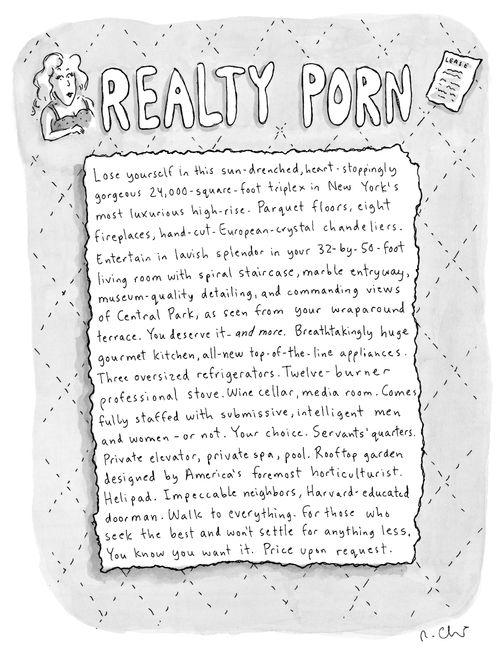 REALTY PORN
LEASE
Lose yourself in this sun-drenched, heart-stoppingly
gorgeous 24,000-square-foot triplex in New York's
most luxurious high-rise. Parquet floors, eight
fireplaces, hand-cut-European-crystal chandeliers.
Entertain in lavish splendor in your 32-by-50-foot
living room with spiral staircase, marble entryway,
museum-quality detailing, and commanding views
of Central Park, as seen from your wraparound
terrace. You deserve it-and more. Breathtakingly huge
gourmet kitchen, all-new top-of-the-line appliances.
Three oversized refrigerators. Twelve-burner
professional stove. Wine cellar, media room. Comes
fully staffed with submissive, intelligent men
and women-or not. Your choice. Servants' quarters.
Private elevator, private spa, pool. Rooftop garden
designed by America's foremost horticulturist.
Helipad. Impeccable neighbors, Harvard-educated
doorman. Walk to everything. For those who
seek the best and won't settle for anything less.
You know you want it. Price upon request.
R. Chr